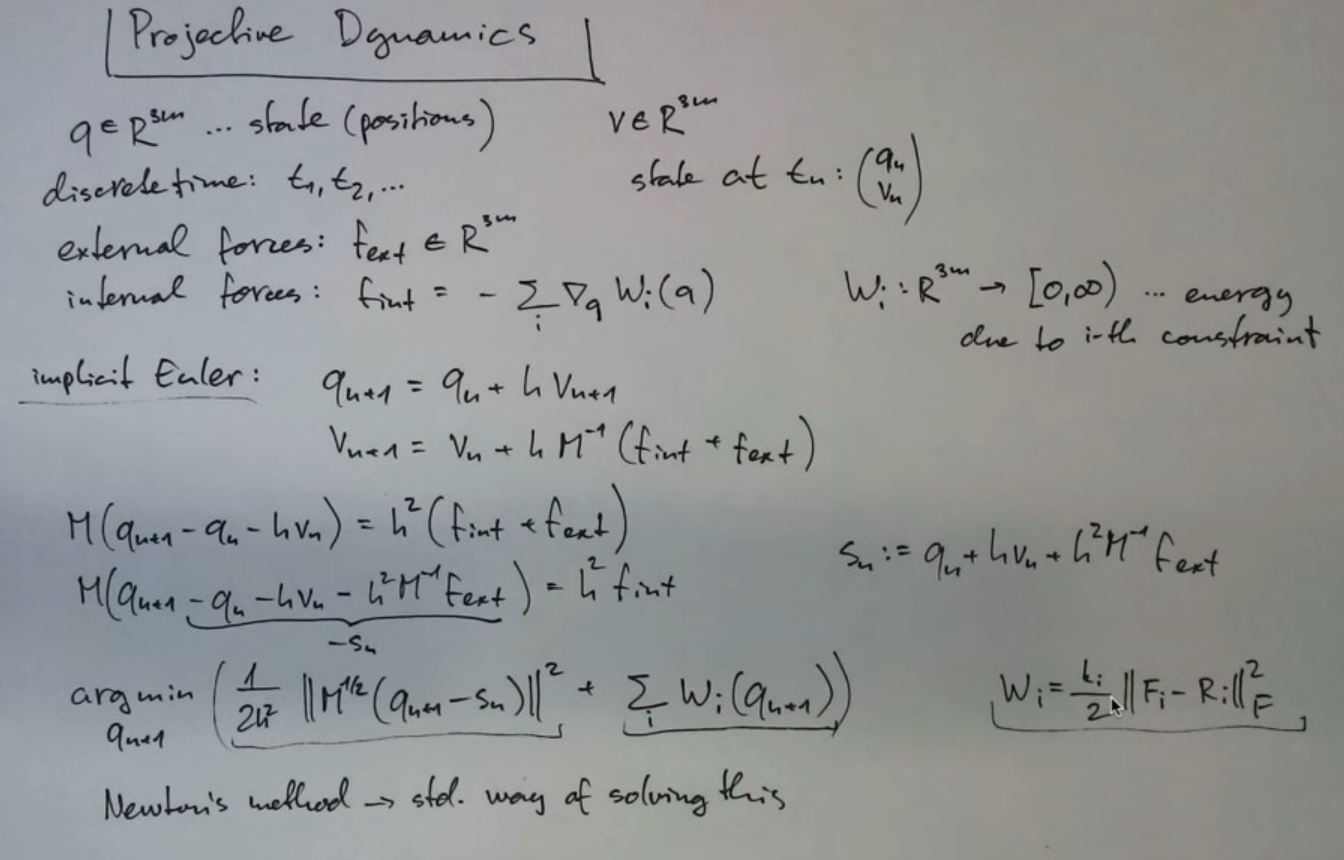 Projective Dynamics
q ∈ R³ᵐ ... state (positions) v ∈ R³ᵐ
discrete time: t₁, t₂, ... state at tₙ: (qₙ vₙ)
external forces: f_ext ∈ R³ᵐ
internal forces: f_int = - Σ_i ∇_q W_i(q) W_i : R³ᵐ → [0,∞) ... energy
due to i-th constraint
implicit Euler: q_{n+1} = q_n + h v_{n+1}
v_{n+1} = v_n + h M⁻¹ (f_int + f_ext)
M(q_{n+1} - q_n - h v_n) = h² (f_int + f_ext)
s_n := q_n + h v_n + h² M⁻¹ f_ext
M(q_{n+1} - q_n - h v_n - h² M⁻¹ f_ext) = h² f_int
-s_n
arg min_{q_{n+1}} ( 1/(2h²) ‖M^{1/2} (q_{n+1} - s_n)‖² + Σ_i W_i(q_{n+1}) ) W_i = k_i/2 ‖F_i - R_i‖²_F
Newton's method → std. way of solving this